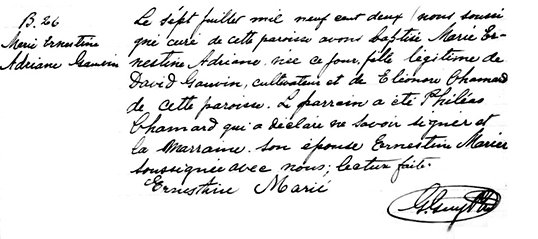 B. 26
Marie Ernestine
Adriane Gauvin
Le sept juillet mil neuf cent deux, nous soussi-
gné curé de cette paroisse avons baptisé Marie Er-
nestine Adriane, née ce jour, fille légitime de
David Gauvin, cultivateur et de Eléonore Chamard
de cette paroisse. Le parrain a été Philéas
Chamard qui a déclaré ne savoir signer et
la marraine son épouse Ernestine Marier
soussignée avec nous; lecture faite.
Ernestine Marié